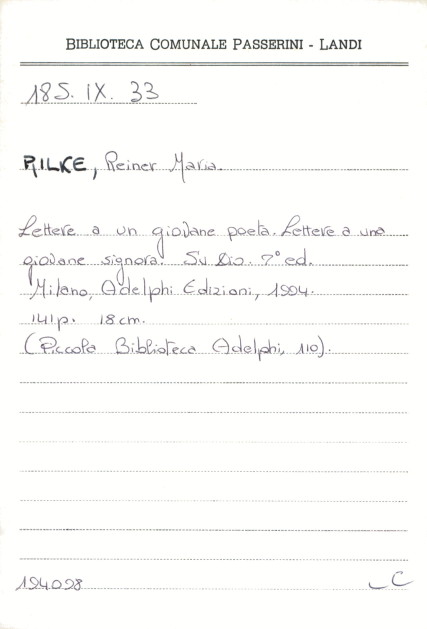 BIBLIOTECA COMUNALE PASSERINI - LANDI
185. IX. 33
RILKE, Reiner Maria.
Lettere a un giovane poeta. Lettere a una
giovane signora. Su Dio. 7° ed.
Milano, Adelphi Edizioni, 1994.
141 p. 18 cm.
(Piccola Biblioteca Adelphi, 110).
194098
C